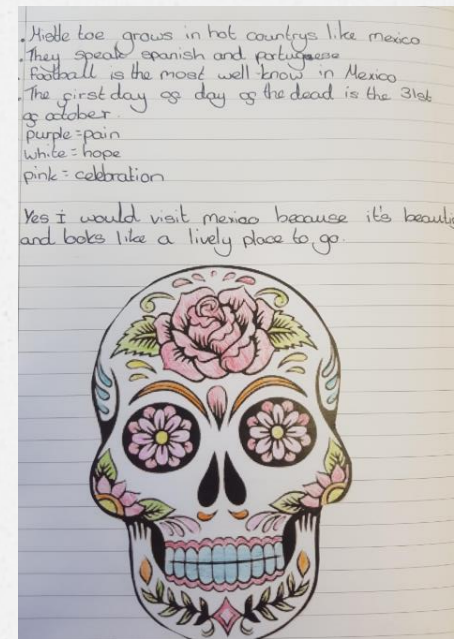 . Mistle toe grows in hot countrys like mexico
. They speak spanish and portuguese
. football is the most well know in Mexico
. The first day of day of the dead is the 31st
of october.
purple = pain
white = hope
pink = celebration
Yes I would visit mexico because it's
and looks like a lively place to go.